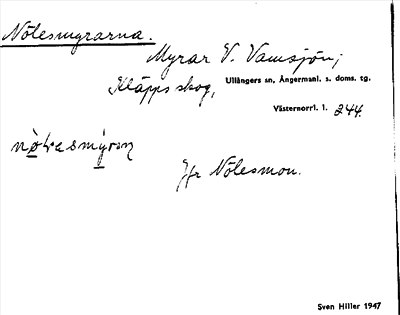 Nölesmyrarna.
Myrar V. Vamsjön;
Kläpps skog,
Ullångers sn, Ångermanl. s. doms. tg.
Västernorrl. l. 244.
Jfr Nölesmon.
Sven Hiller 1947